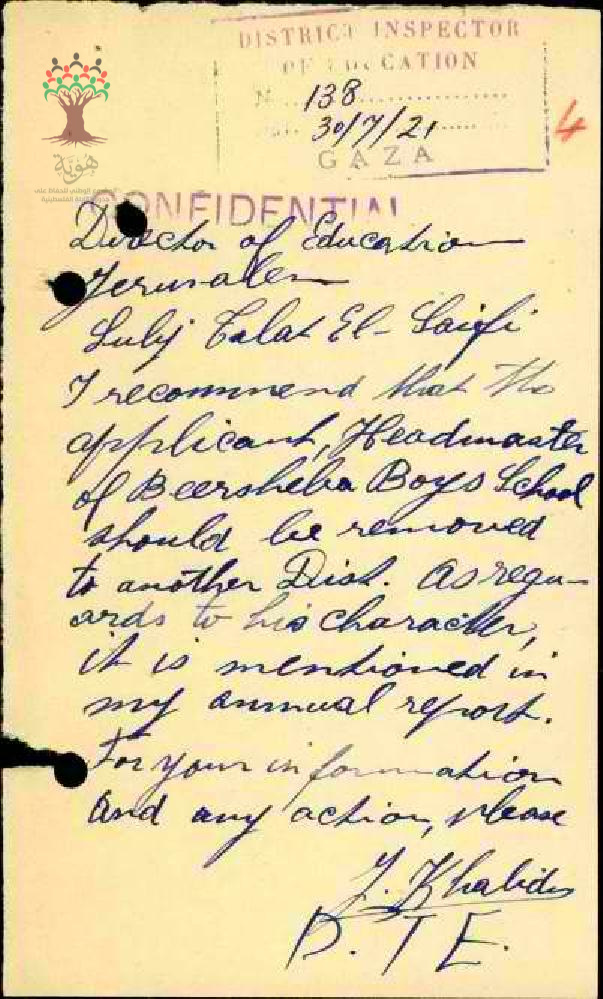 DISTRICT INSPECTOR
OF EDUCATION
No. 138
30/7/21
GAZA
4
هوية
CONFIDENTIAL
Director of Education
Jerusalem
Subj Talat El-Saifi
I recommend that the
applicant, Headmaster
of Beersheba Boys School
should be removed
to another Dist. As rega-
ards to his character,
it is mentioned in
my annual report.
For your information
and any action, please